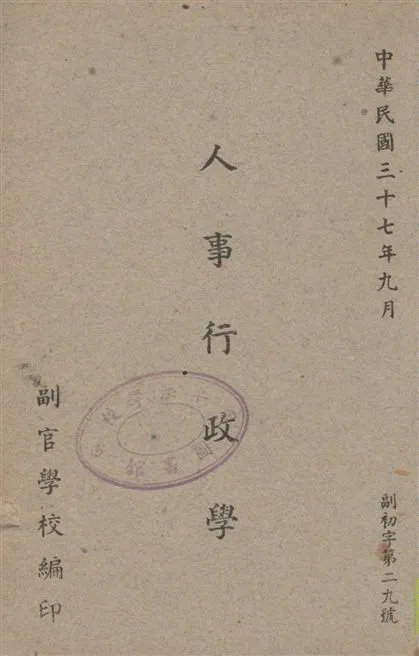 中華民國三十七年九月
副初字第二九號
人事行政學
副官學校編印